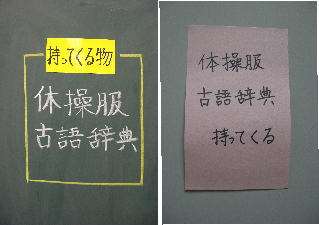 持ってくる物
体操服
古語辞典
体操服
古語辞典
持ってくる